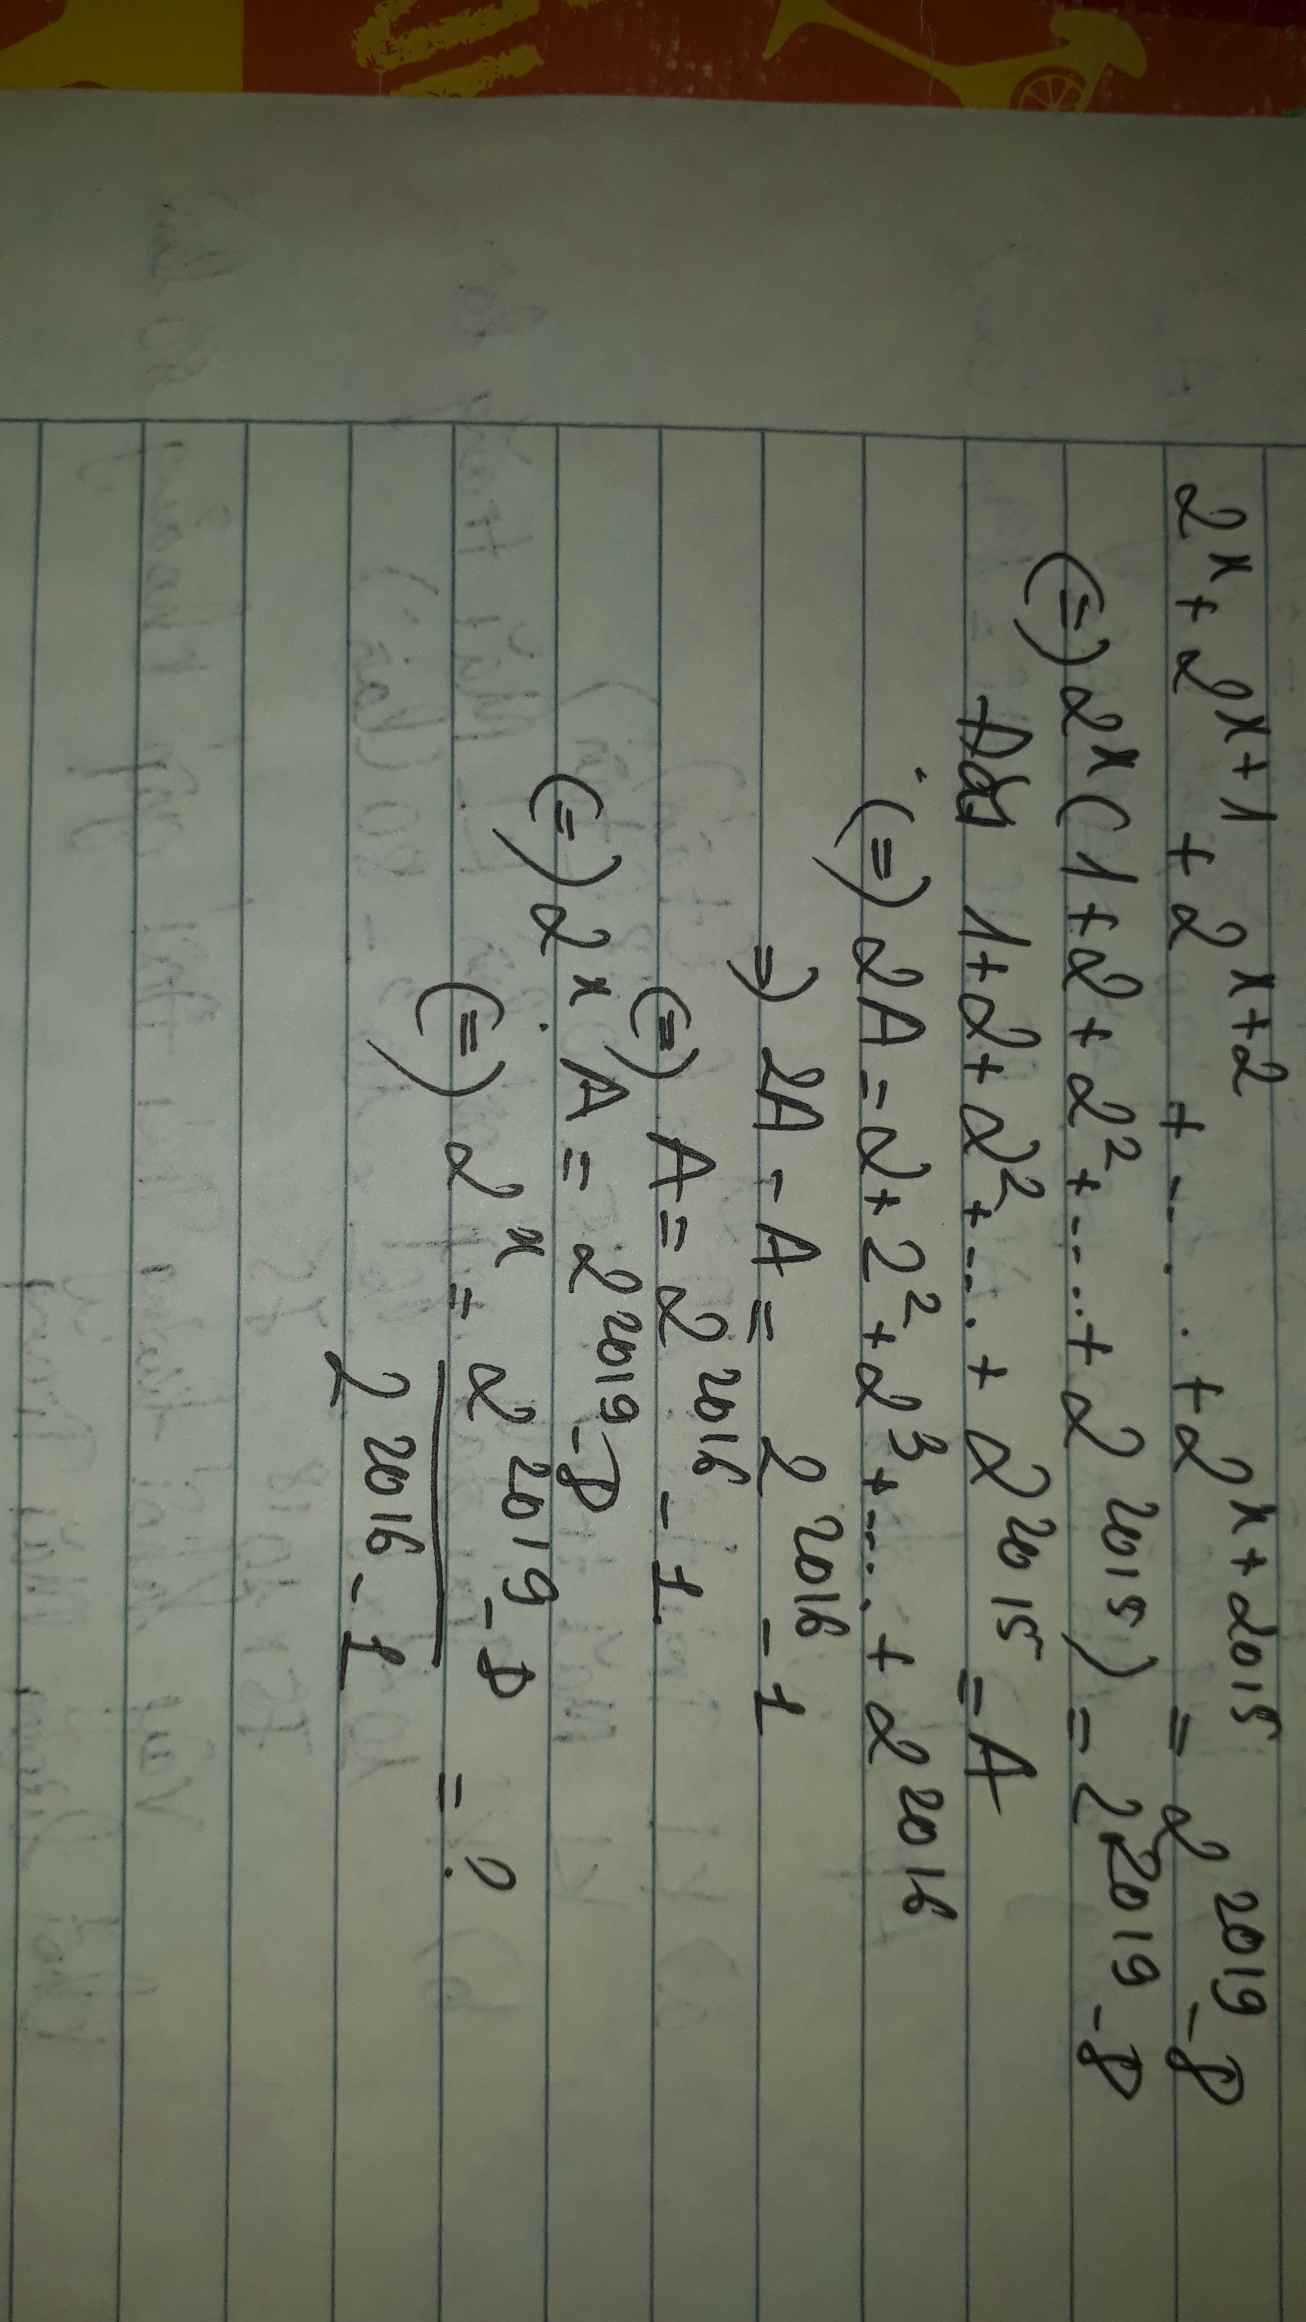 2^x + 2^{x+1} + 2^{x+2} + ... + 2^{x+2015} = 2^{2019} - 8
(=) 2^x (1 + 2 + 2^2 + .... + 2^{2015}) = 2^{2019} - 8
Đặt 1 + 2 + 2^2 + .... + 2^{2015} = A
(=) 2A = 2 + 2^2 + 2^3 + .... + 2^{2016}
=) 2A - A = 2^{2016} - 1
(=) A = 2^{2016} - 1.
(=) 2^x . A = 2^{2019} - 8
(=) 2^x = \frac{2^{2019} - 8}{2^{2016} - 1} = ?